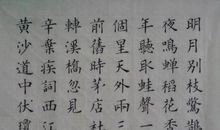 明月別枝驚鵲
夜鳴蟬稻花香
年聽取蛙聲一
個星天外兩三
前舊時茅店社
轉溪橋忽見
辛棄疾詞西江
黃沙道中伏瓊